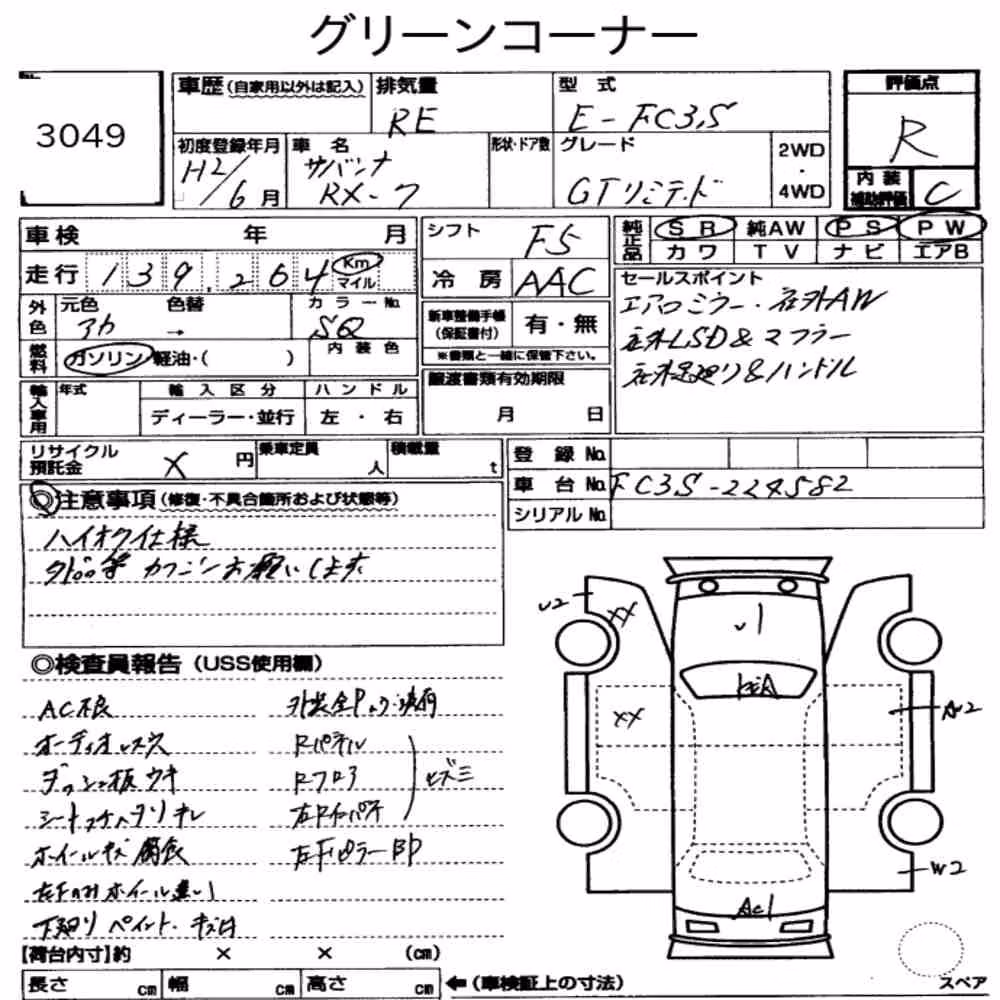 グリーンコーナー
3049
車歴 (自家用以外は記入)
排気量
RE
型式
E-FC3S
評価点
R
内装
補助評価
C
初度登録年月
H2/6月
車名
サバンナ
RX-7
形状・ドア数
グレード
GTリミテッド
2WD
・
4WD
車検 年 月
走行 139,264 Km
マイル
シフト
F5
冷房 AAC
純正品
SR 純AW PS PW
カワ TV ナビ エアB
セールスポイント
エアロミラー・社外AW
社外LSD&マフラー
社外足廻り&ハンドル
外色
元色 色替 カラーNo.
アカ → SQ
燃料
ガソリン 軽油・( )
内装色
新車整備手帳
(保証書付)
有・無
※書類と一緒に保管下さい。
輸入車用
年式
輸入区分
ハンドル
ディーラー・並行
左・右
譲渡書類有効期限
月 日
リサイクル
預託金
X 円
乗車定員
人
積載量
t
登録No.
車台No. FC3S-224582
シリアルNo.
◎注意事項 (修復・不具合箇所および状態等)
ハイオク仕様
欠品等 カクニンお願いします
◎検査員報告 (USS使用欄)
AC不良
オーディオレス穴
ダッシュ板ウキ
シートコゲ穴スリキレ
ホイールキズ 腐食
左Fのみホイール違い
下廻り ペイント・キズ凹
Rパネル
Rフロア
ヒズミ
左FピラーBP
U2
XX
U1
XX
A2
W2
AC1
【荷台内寸】約 × × (cm)
長さ cm 幅 cm 高さ cm
←(車検証上の寸法)
スペア